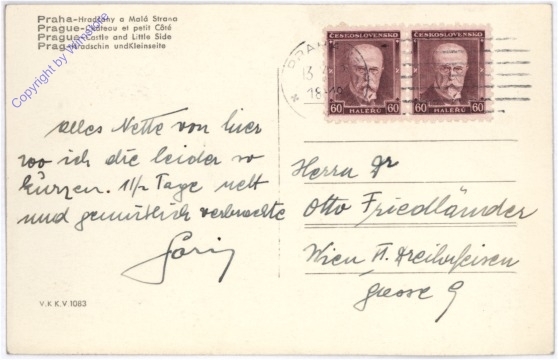 Praha-Hradčany a Malá Strana
Prague-Château et petit Côté
Prague-Castle and Little Side
Prag-Hradschin und Kleinseite
Copyright by Wimstore
ČESKOSLOVENSKO ČESKOSLOVENSKO
60 HALÉŘŮ 60 60 HALÉŘŮ 60
PRAHA
18-19
Alles Nette von hier
wo ich die leider so
kurzen 1 1/2 Tage nett
und gemütlich verbrachte
Herrn Dr
Otto Friedländer
Wien II. Dreihufeisen
gasse 9
V.K.K.V. 1083